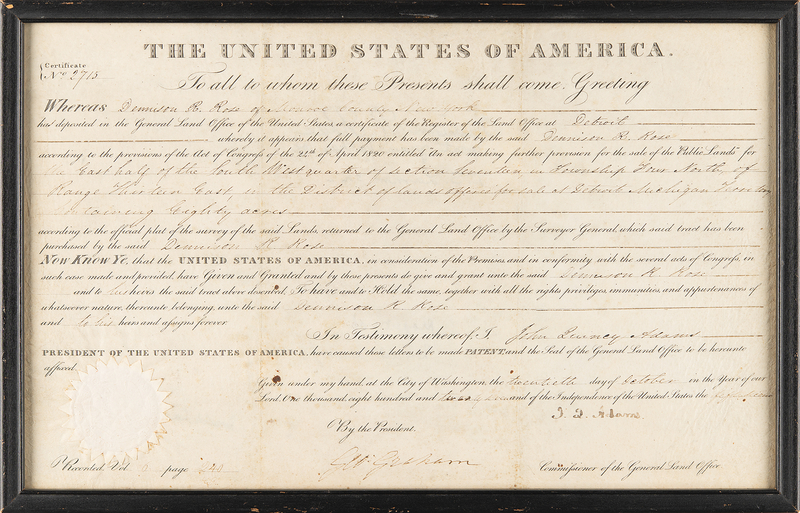 THE UNITED STATES OF AMERICA.
Certificate
No. 2715
To all to whom these Presents shall come, Greeting
Whereas Dennison R. Rose of Monroe County New York
has deposited in the General Land Office of the United States, a certificate of the Register of the Land Office at Detroit
whereby it appears that full payment has been made by the said Dennison R. Rose
according to the provisions of the Act of Congress of the 24th of April 1820 entitled "An act making further provision for the sale of the Public Lands" for
the East half of the South West quarter of section seventeen, in Township Four North, of
Range Thirteen East, in the District of lands offered for sale at Detroit Michigan Territory
containing Eighty acres
according to the official plat of the survey of the said Lands, returned to the General Land Office by the Surveyor General, which said tract has been
purchased by the said Dennison R. Rose
Now Know Ye, that the UNITED STATES OF AMERICA, in consideration of the Premises, and in conformity with the several acts of Congress, in
such case made and provided, have Given and Granted and by these presents do give and grant unto the said Dennison R. Rose
and to his heirs the said tract above described, To have and to Hold the same, together with all the rights privileges, immunities, and appurtenances of
whatsoever nature, thereunto belonging, unto the said Dennison R. Rose
and to his heirs and assigns forever.
In Testimony whereof, I, John Quincy Adams
PRESIDENT OF THE UNITED STATES OF AMERICA, have caused these letters to be made PATENT, and the Seal of the General Land Office to be hereunto
affixed.
Given under my hand, at the City of Washington, the twentieth day of October in the Year of our
Lord, One thousand, eight hundred and and of the Independence of the United States the
J. Q. Adams
By the President.
Geo: Graham Commissioner of the General Land Office
Recorded, Vol. page